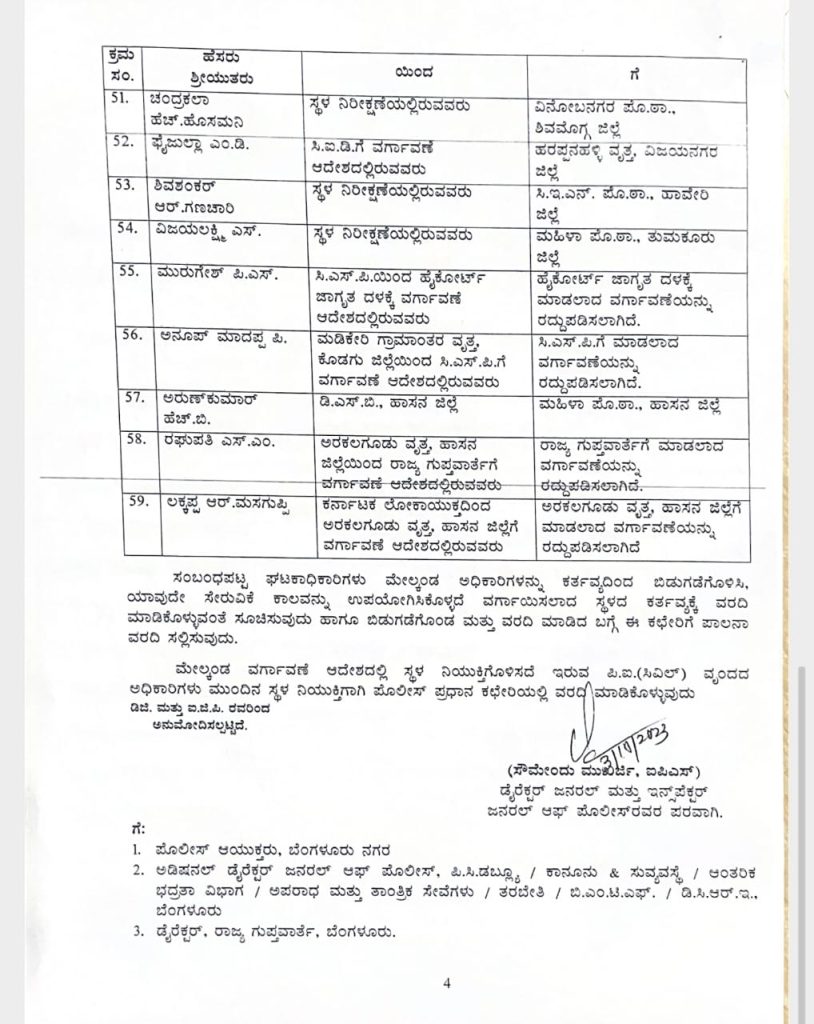 ಕ್ರಮ ಸಂ. ಹೆಸರು ಶ್ರೀಯುತರು ಯಿಂದ ಗೆ
51. ಚಂದ್ರಕಲಾ ಸ್ಥಳ ನಿರೀಕ್ಷಣೆಯಲ್ಲಿರುವವರು ವಿನೋಬನಗರ ಪೊ.ಠಾ.,
ಹೆಚ್.ಹೊಸಮನಿ ಶಿವಮೊಗ್ಗ ಜಿಲ್ಲೆ
52. ಫೈಜುಲ್ಲಾ ಎಂ.ಡಿ. ಸಿ.ಐ.ಡಿ.ಗೆ ವರ್ಗಾವಣೆ ಹರಪ್ಪನಹಳ್ಳಿ ವೃತ್ತ, ವಿಜಯನಗರ
ಆದೇಶದಲ್ಲಿರುವವರು ಜಿಲ್ಲೆ
53. ಶಿವಶಂಕರ್ ಸ್ಥಳ ನಿರೀಕ್ಷಣೆಯಲ್ಲಿರುವವರು ಸಿ.ಇ.ಎನ್. ಪೊ.ಠಾ., ಹಾವೇರಿ
ಆರ್.ಗಣಚಾರಿ ಜಿಲ್ಲೆ
54. ವಿಜಯಲಕ್ಷ್ಮಿ ಎಸ್. ಸ್ಥಳ ನಿರೀಕ್ಷಣೆಯಲ್ಲಿರುವವರು ಮಹಿಳಾ ಪೊ.ಠಾ., ತುಮಕೂರು
ಜಿಲ್ಲೆ
55. ಮುರುಗೇಶ್ ಪಿ.ಎಸ್. ಸಿ.ಎಸ್.ಪಿ.ಯಿಂದ ಹೈಕೋರ್ಟ್ ಹೈಕೋರ್ಟ್ ಜಾಗೃತ ದಳಕ್ಕೆ
ಜಾಗೃತ ದಳಕ್ಕೆ ವರ್ಗಾವಣೆ ಮಾಡಲಾದ ವರ್ಗಾವಣೆಯನ್ನು
ಆದೇಶದಲ್ಲಿರುವವರು ರದ್ದುಪಡಿಸಲಾಗಿದೆ.
56. ಅನೂಪ್ ಮಾದಪ್ಪ ಪಿ. ಮಡಿಕೇರಿ ಗ್ರಾಮಾಂತರ ವೃತ್ತ, ಸಿ.ಎಸ್.ಪಿ.ಗೆ ಮಾಡಲಾದ
ಕೊಡಗು ಜಿಲ್ಲೆಯಿಂದ ಸಿ.ಎಸ್.ಪಿ.ಗೆ ವರ್ಗಾವಣೆಯನ್ನು
ವರ್ಗಾವಣೆ ಆದೇಶದಲ್ಲಿರುವವರು ರದ್ದುಪಡಿಸಲಾಗಿದೆ.
57. ಅರುಣ್‌ಕುಮಾರ್ ಡಿ.ಎಸ್.ಬಿ., ಹಾಸನ ಜಿಲ್ಲೆ ಮಹಿಳಾ ಪೊ.ಠಾ., ಹಾಸನ ಜಿಲ್ಲೆ
ಹೆಚ್.ಬಿ.
58. ರಘುಪತಿ ಎಸ್.ಎಂ. ಅರಕಲಗೂಡು ವೃತ್ತ, ಹಾಸನ ರಾಜ್ಯ ಗುಪ್ತವಾರ್ತೆಗೆ ಮಾಡಲಾದ
ಜಿಲ್ಲೆಯಿಂದ ರಾಜ್ಯ ಗುಪ್ತವಾರ್ತೆಗೆ ವರ್ಗಾವಣೆಯನ್ನು
ವರ್ಗಾವಣೆ ಆದೇಶದಲ್ಲಿರುವವರು ರದ್ದುಪಡಿಸಲಾಗಿದೆ.
59. ಲಕ್ಕಪ್ಪ ಆರ್.ಮಸಗುಪ್ಪಿ ಕರ್ನಾಟಕ ಲೋಕಾಯುಕ್ತದಿಂದ ಅರಕಲಗೂಡು ವೃತ್ತ, ಹಾಸನ ಜಿಲ್ಲೆಗೆ
ಅರಕಲಗೂಡು ವೃತ್ತ, ಹಾಸನ ಜಿಲ್ಲೆಗೆ ಮಾಡಲಾದ ವರ್ಗಾವಣೆಯನ್ನು
ವರ್ಗಾವಣೆ ಆದೇಶದಲ್ಲಿರುವವರು ರದ್ದುಪಡಿಸಲಾಗಿದೆ
ಸಂಬಂಧಪಟ್ಟ ಘಟಕಾಧಿಕಾರಿಗಳು ಮೇಲ್ಕಂಡ ಅಧಿಕಾರಿಗಳನ್ನು ಕರ್ತವ್ಯದಿಂದ ಬಿಡುಗಡೆಗೊಳಿಸಿ,
ಯಾವುದೇ ಸೇರುವಿಕೆ ಕಾಲವನ್ನು ಉಪಯೋಗಿಸಿಕೊಳ್ಳದೆ ವರ್ಗಾಯಿಸಲಾದ ಸ್ಥಳದ ಕರ್ತವ್ಯಕ್ಕೆ ವರದಿ
ಮಾಡಿಕೊಳ್ಳುವಂತೆ ಸೂಚಿಸುವುದು ಹಾಗೂ ಬಿಡುಗಡೆಗೊಂಡ ಮತ್ತು ವರದಿ ಮಾಡಿದ ಬಗ್ಗೆ ಈ ಕಛೇರಿಗೆ ಪಾಲನಾ
ವರದಿ ಸಲ್ಲಿಸುವುದು.
ಮೇಲ್ಕಂಡ ವರ್ಗಾವಣೆ ಆದೇಶದಲ್ಲಿ ಸ್ಥಳ ನಿಯುಕ್ತಿಗೊಳಿಸದೆ ಇರುವ ಪಿ.ಐ.(ಸಿವಿಲ್) ವೃಂದದ
ಅಧಿಕಾರಿಗಳು ಮುಂದಿನ ಸ್ಥಳ ನಿಯುಕ್ತಿಗಾಗಿ ಪೊಲೀಸ್ ಪ್ರಧಾನ ಕಛೇರಿಯಲ್ಲಿ ವರದಿ ಮಾಡಿಕೊಳ್ಳುವುದು
ಡಿಜಿ. ಮತ್ತು ಐ.ಜಿ.ಪಿ. ರವರಿಂದ
ಅನುಮೋದಿಸಲ್ಪಟ್ಟಿದೆ.
3/10/2023
(ಸೌಮೇಂದು ಮುಖರ್ಜಿ, ಐಪಿಎಸ್)
ಡೈರೆಕ್ಟರ್ ಜನರಲ್ ಮತ್ತು ಇನ್ಸ್‌ಪೆಕ್ಟರ್
ಜನರಲ್ ಆಫ್ ಪೊಲೀಸ್‌ರವರ ಪರವಾಗಿ.
ಗೆ:
1. ಪೊಲೀಸ್ ಆಯುಕ್ತರು, ಬೆಂಗಳೂರು ನಗರ
2. ಅಡಿಷನಲ್ ಡೈರೆಕ್ಟರ್ ಜನರಲ್ ಆಫ್ ಪೊಲೀಸ್, ಪಿ.ಸಿ.ಡಬ್ಲ್ಯೂ / ಕಾನೂನು & ಸುವ್ಯವಸ್ಥೆ / ಆಂತರಿಕ
ಭದ್ರತಾ ವಿಭಾಗ / ಅಪರಾಧ ಮತ್ತು ತಾಂತ್ರಿಕ ಸೇವೆಗಳು / ತರಬೇತಿ / ಬಿ.ಎಂ.ಟಿ.ಎಫ್. / ಡಿ.ಸಿ.ಆರ್.ಇ.,
ಬೆಂಗಳೂರು
3. ಡೈರೆಕ್ಟರ್, ರಾಜ್ಯ ಗುಪ್ತವಾರ್ತೆ, ಬೆಂಗಳೂರು.
4